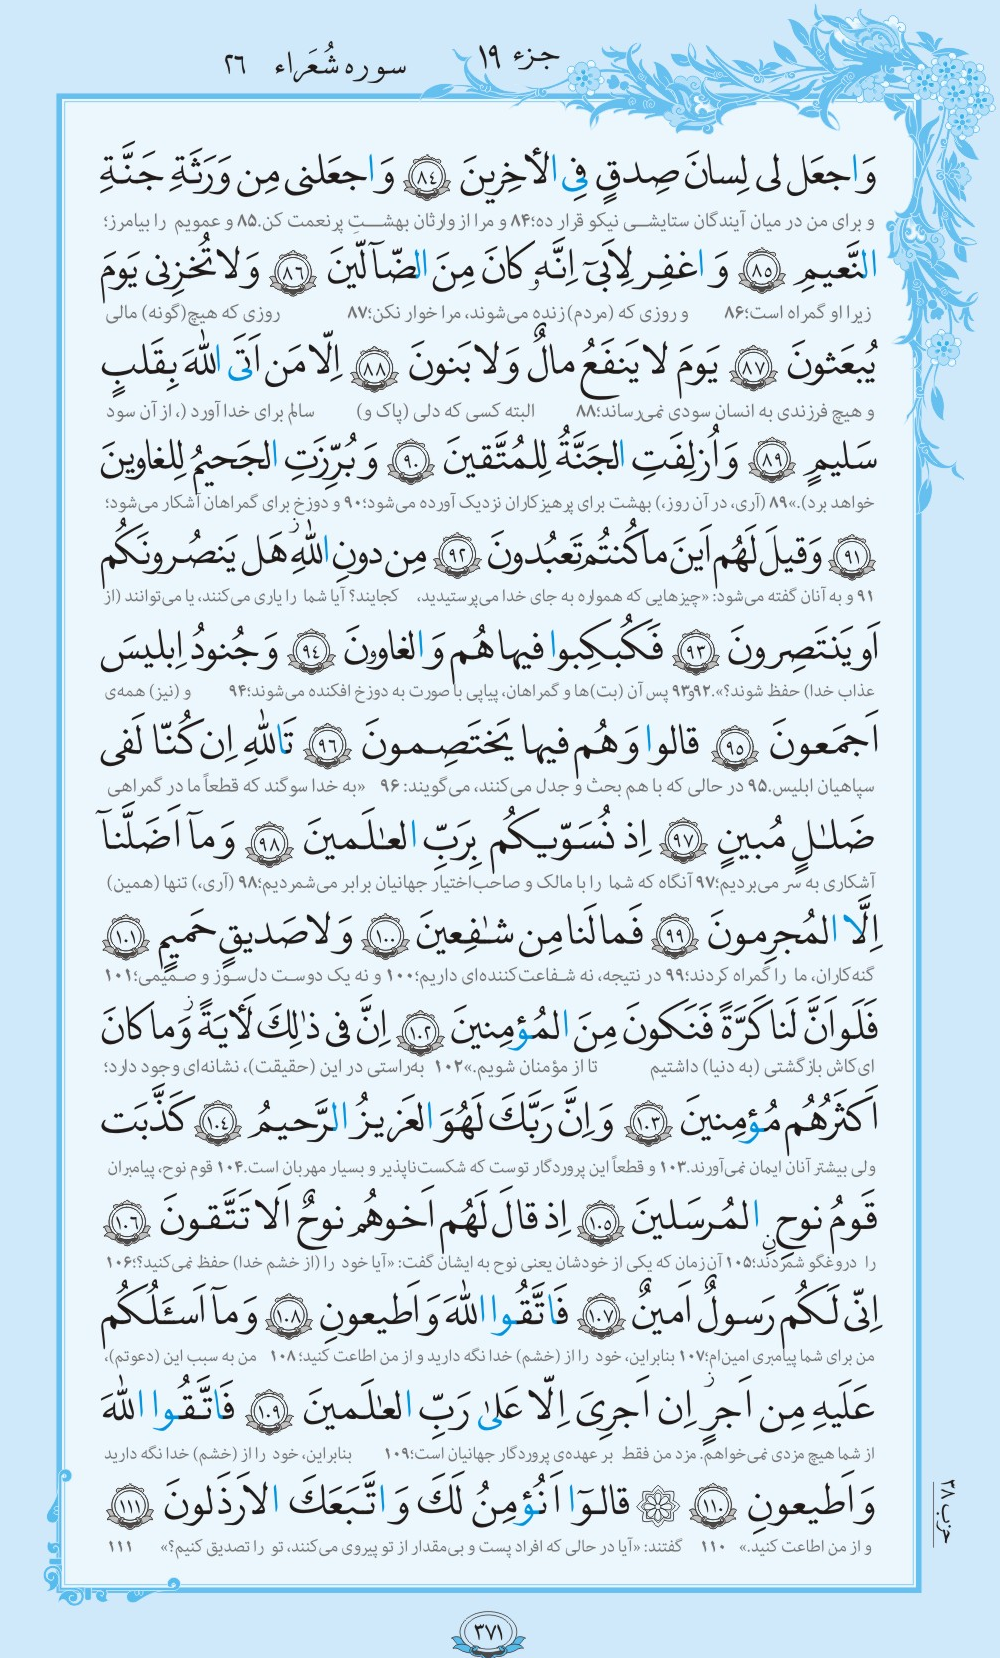 جزء ۱۹
سوره شُعَراء ۲۶
وَاجعَل لی لِسانَ صِدقٍ فِی الأخِرینَ ﴿٨٤﴾ وَاجعَلنی مِن وَرَثَةِ جَنَّةِ
و برای من در میان آیندگان ستایشی نیکو قرار ده؛۸۴ و مرا از وارثان بهشتِ پرنعمت کن.۸۵ و عمویم را بیامرز؛
النَّعیمِ ﴿٨٥﴾ وَاغفِر لِاَبیٓ اِنَّهٗ کانَ مِنَ الضّآلّینَ ﴿٨٦﴾ وَلاتُخزِنی یَومَ
زیرا او گمراه است؛۸۶ و روزی که (مردم) زنده می‌شوند، مرا خوار نکن؛۸۷ روزی که هیچ (گونه) مالی
یُبعَثونَ ﴿٨٧﴾ یَومَ لا یَنفَعُ مالٌ وَلا بَنونَ ﴿٨٨﴾ اِلّا مَن اَتَی اللهَ بِقَلبٍ
و هیچ فرزندی به انسان سودی نمی‌رساند؛۸۸ البته کسی که دلی (پاک و) سالم برای خدا آورد (، از آن سود
سَلیمٍ ﴿٨٩﴾ وَاُزلِفَتِ الجَنَّةُ لِلمُتَّقینَ ﴿٩٠﴾ وَبُرِّزَتِ الجَحیمُ لِلغاوینَ
خواهد برد).»۸۹ (آری، در آن روز،) بهشت برای پرهیزکاران نزدیک آورده می‌شود؛۹۰ و دوزخ برای گمراهان آشکار می‌شود؛
﴿٩١﴾ وَقیلَ لَهُم اَینَ ماکُنتُم تَعبُدونَ ﴿٩٢﴾ مِن دونِ اللهِ ز هَل یَنصُرونَکُم
۹۱ و به آنان گفته می‌شود: «چیزهایی که همواره به جای خدا می‌پرستیدید، کجایند؟ آیا شما را یاری می‌کنند، یا می‌توانند (از
اَو یَنتَصِرونَ ﴿٩٣﴾ فَکُبکِبوا فیها هُم وَالغاوونَ ﴿٩٤﴾ وَجُنودُ اِبلیسَ
عذاب خدا) حفظ شوند؟».۹۲و۹۳ پس آن (بت)ها و گمراهان، پیاپی با صورت به دوزخ افکنده می‌شوند؛۹۴ و (نیز) همه‌ی
اَجمَعونَ ﴿٩٥﴾ قالوا وَهُم فیها یَختَصِمونَ ﴿٩٦﴾ تَاللهِ اِن کُنّا لَفی
سپاهیان ابلیس.۹۵ در حالی که با هم بحث و جدل می‌کنند، می‌گویند: ۹۶ «به خدا سوگند که قطعاً ما در گمراهی
ضَلٰلٍ مُبینٍ ﴿٩٧﴾ اِذ نُسَوّیکُم بِرَبِّ العٰلَمینَ ﴿٩٨﴾ وَمآ اَضَلَّنآ
آشکاری به سر می‌بردیم؛۹۷ آنگاه که شما را با مالک و صاحب‌اختیار جهانیان برابر می‌شمردیم؛۹۸ (آری،) تنها (همین)
اِلَّا المُجرِمونَ ﴿٩٩﴾ فَما لَنا مِن شٰفِعینَ ﴿١٠٠﴾ وَلا صَدیقٍ حَمیمٍ ﴿١٠١﴾
گنه‌کاران، ما را گمراه کردند؛۹۹ در نتیجه، نه شفاعت‌کننده‌ای داریم؛۱۰۰ و نه یک دوست دل‌سوز و صمیمی؛۱۰۱
فَلَو اَنَّ لَنا کَرَّةً فَنَکونَ مِنَ المُؤمِنینَ ﴿١٠٢﴾ اِنَّ فی ذٰلِکَ لَأیَةً ز وَما کانَ
ای‌کاش بازگشتی (به دنیا) داشتیم تا از مؤمنان شویم.»۱۰۲ به‌راستی در این (حقیقت)، نشانه‌ای وجود دارد؛
اَکثَرُهُم مُؤمِنینَ ﴿١٠٣﴾ وَاِنَّ رَبَّکَ لَهُوَ العَزیزُ الرَّحیمُ ﴿١٠٤﴾ کَذَّبَت
ولی بیشتر آنان ایمان نمی‌آورند.۱۰۳ و قطعاً این پروردگار توست که شکست‌ناپذیر و بسیار مهربان است.۱۰۴ قوم نوح، پیامبران
قَومُ نوحٍنِ المُرسَلینَ ﴿١٠٥﴾ اِذ قالَ لَهُم اَخوهُم نوحٌ اَلا تَتَّقونَ ﴿١٠٦﴾
را دروغگو شمردند؛۱۰۵ آن زمان که یکی از خودشان یعنی نوح به ایشان گفت: «آیا خود را (از خشم خدا) حفظ نمی‌کنید؟؛۱۰۶
اِنّی لَکُم رَسولٌ اَمینٌ ﴿١٠٧﴾ فَاتَّقُوا اللهَ وَاَطیعونِ ﴿١٠٨﴾ وَمآ اَسـَٔلُکُم
من برای شما پیامبری امین‌ام؛۱۰۷ بنابراین، خود را از (خشم) خدا نگه دارید و از من اطاعت کنید؛۱۰۸ من به سبب این (دعوتم)،
عَلَیهِ مِن اَجرٍ ز اِن اَجرِیَ اِلّا عَلیٰ رَبِّ العٰلَمینَ ﴿١٠٩﴾ فَاتَّقُوا اللهَ
از شما هیچ مزدی نمی‌خواهم. مزد من فقط بر عهده‌ی پروردگار جهانیان است؛۱۰۹ بنابراین، خود را از (خشم) خدا نگه دارید
وَاَطیعونِ ﴿١١٠﴾ قالوٓا اَنُؤمِنُ لَکَ وَاتَّبَعَکَ الاَرذَلونَ ﴿١١١﴾
و از من اطاعت کنید.» ۱۱۰ گفتند: «آیا در حالی که افراد پست و بی‌مقدار از تو پیروی می‌کنند، تو را تصدیق کنیم؟» ۱۱۱
حزب ۳۸
۳۷۱